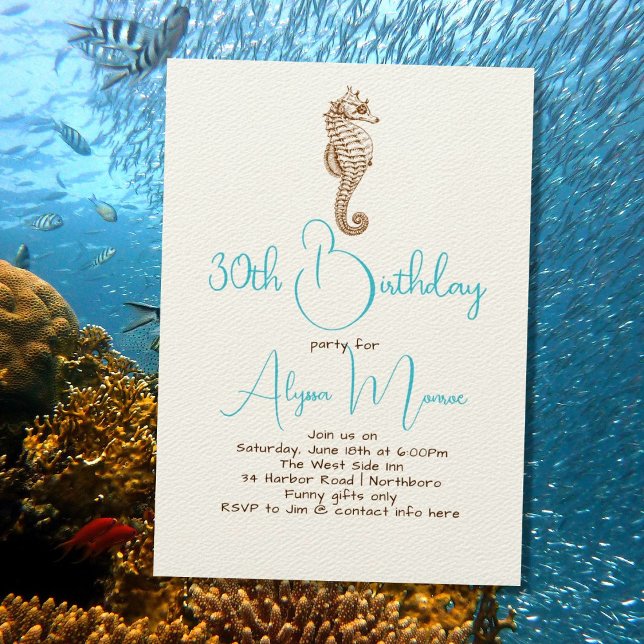 30th Birthday
party for
Alyssa Monroe
Join us on
Saturday, June 18th at 6:00PM
The West Side Inn
34 Harbor Road | Northboro
Funny gifts only
RSVP to Jim @ contact info here